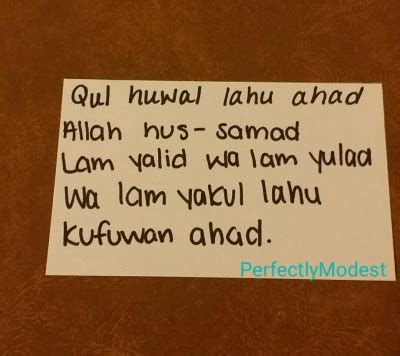 Qul huwal lahu ahad
Allah hus-samad
Lam yalid wa lam yulad
Wa lam yakul lahu
kufuwan ahad.
PerfectlyModest